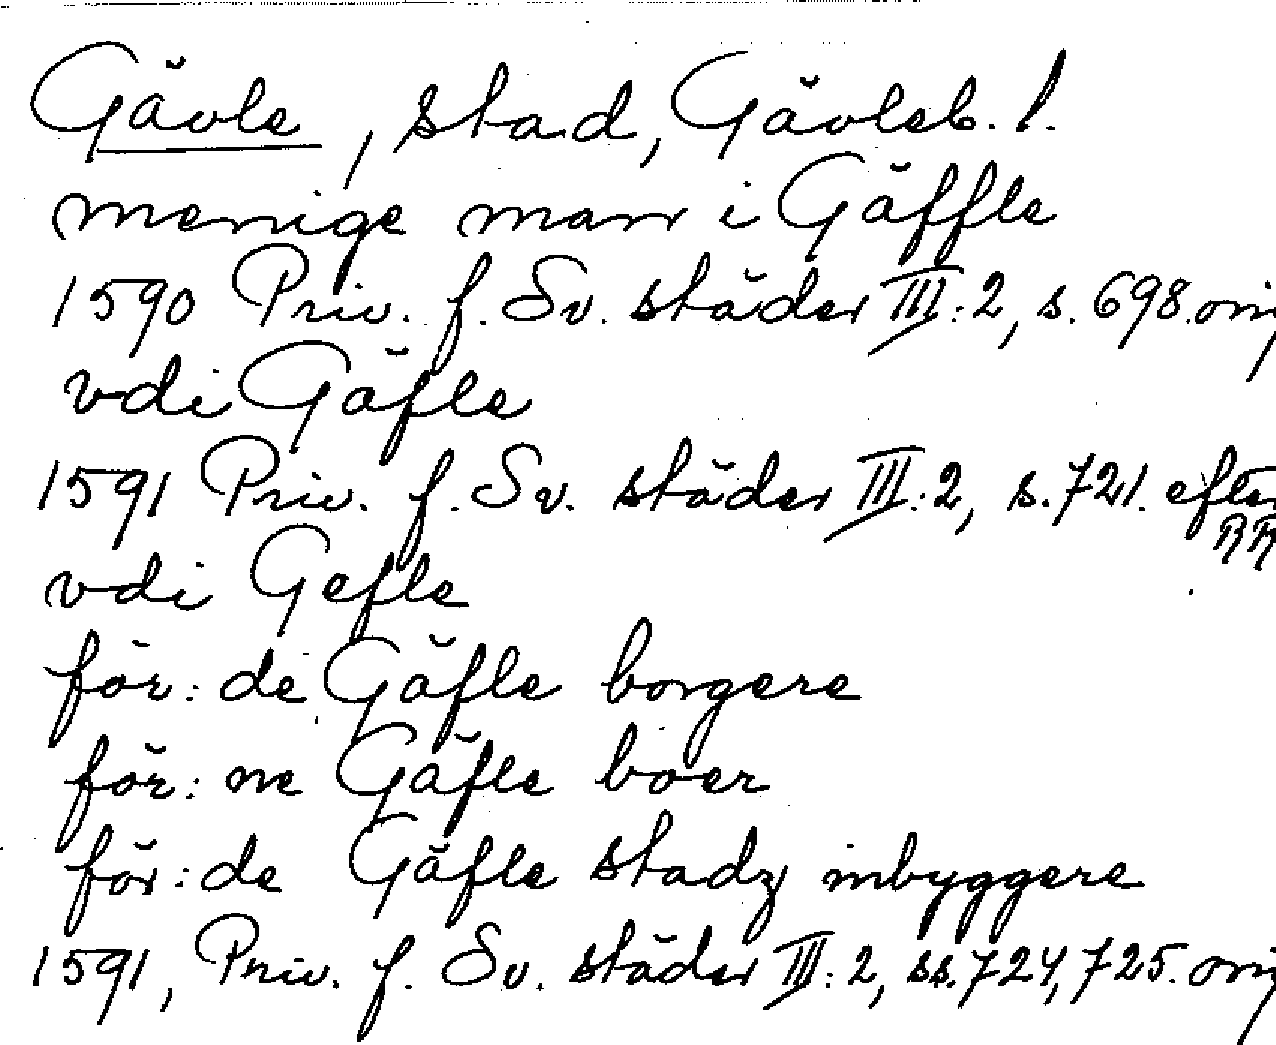 Gävle, stad, Gävleb. l.
menige man i Gäffle
1590 Priv. f. Sv. städer III:2, s. 698. orig
vdi Gäfle
1591 Priv. f. Sv. städer III:2, s. 721. efter
RR
vdi Gefle
för:de Gäfle borgere
för:ne Gäfle boer
för:de Gäfle stadz inbyggere
1591, Priv. f. Sv. städer III:2, ss. 724, 725. orig